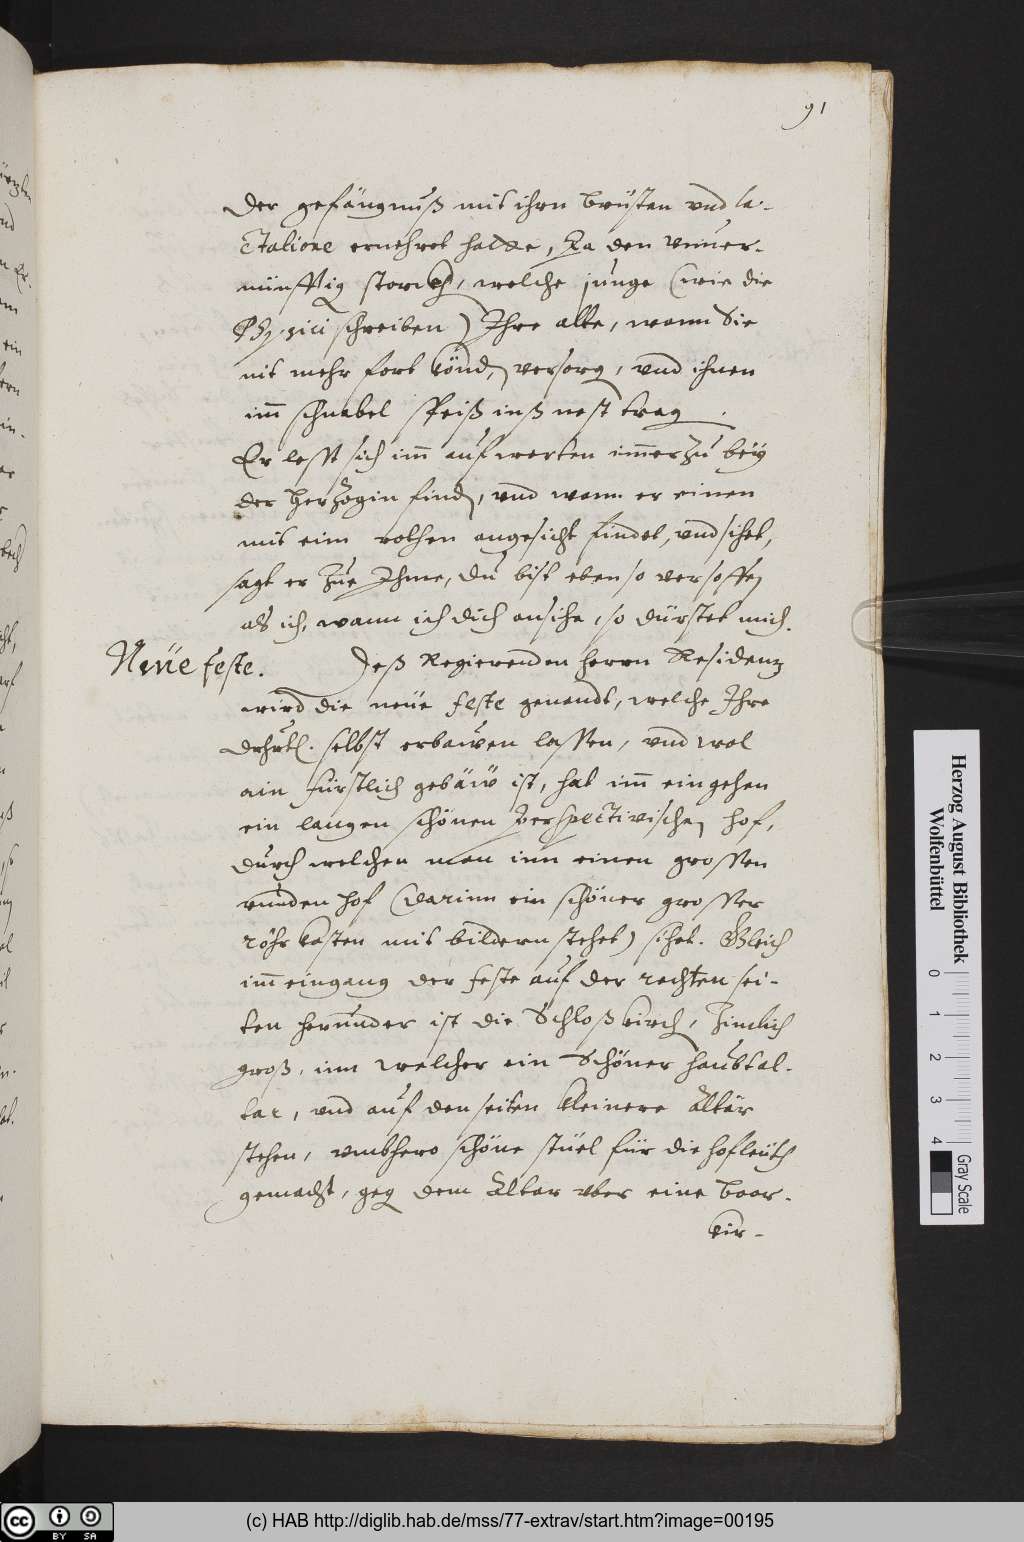 91
der gefängnuß mit ihrn brüsten vnd la-
ctatione ernehret hatte, Ja den vnuer-
nünfftig storckh, welche junge (wie die
Physici schreiben) Ihre alte, wann Sie
nit mehr fort könd, versorg, vnd ihnen
im̄ schnabel speiß inß nest trag.
Er lesst sich im̄ aufwerten im̄erzu beÿ
der Herzogin find, vnd wann er einen
mit eim rothen angesicht findet, vnd sihet,
sagt er zue Ihme, du bist eben so versoffen
als ich, wann ich dich ansihe, so dürstet mich.
Neüe feste. Deß Regierenden herrn Residenz
wird die neüe feste genendt, welche Ihre
Drhrtl. selbst erbawen lassen, vnd wol
ain fürstlich gebäw ist, hat im̄ eingehen
ein langen schönen perspectivischen hof,
durch welchen man inn einen grossen
runden hof (darinn ein schöner grosser
röhrkasten mit bildern stehet) sihet. Gleich
im̄ eingang der feste auf der rechten sei-
ten herunder ist die Schloßkirch, zimlich
groß, inn welcher ein Schöner haubtal-
tar, vnd auf den seiten kleinere Altär
stehen, vmbhero schöne stüel für die hofleüth
gemacht, geg dem Altar vber eine boor-
kir-
Herzog August Bibliothek
Wolfenbüttel
0 1 2 3 4
Gray Scale
cc BY SA
(c) HAB http://diglib.hab.de/mss/77-extrav/start.htm?image=00195